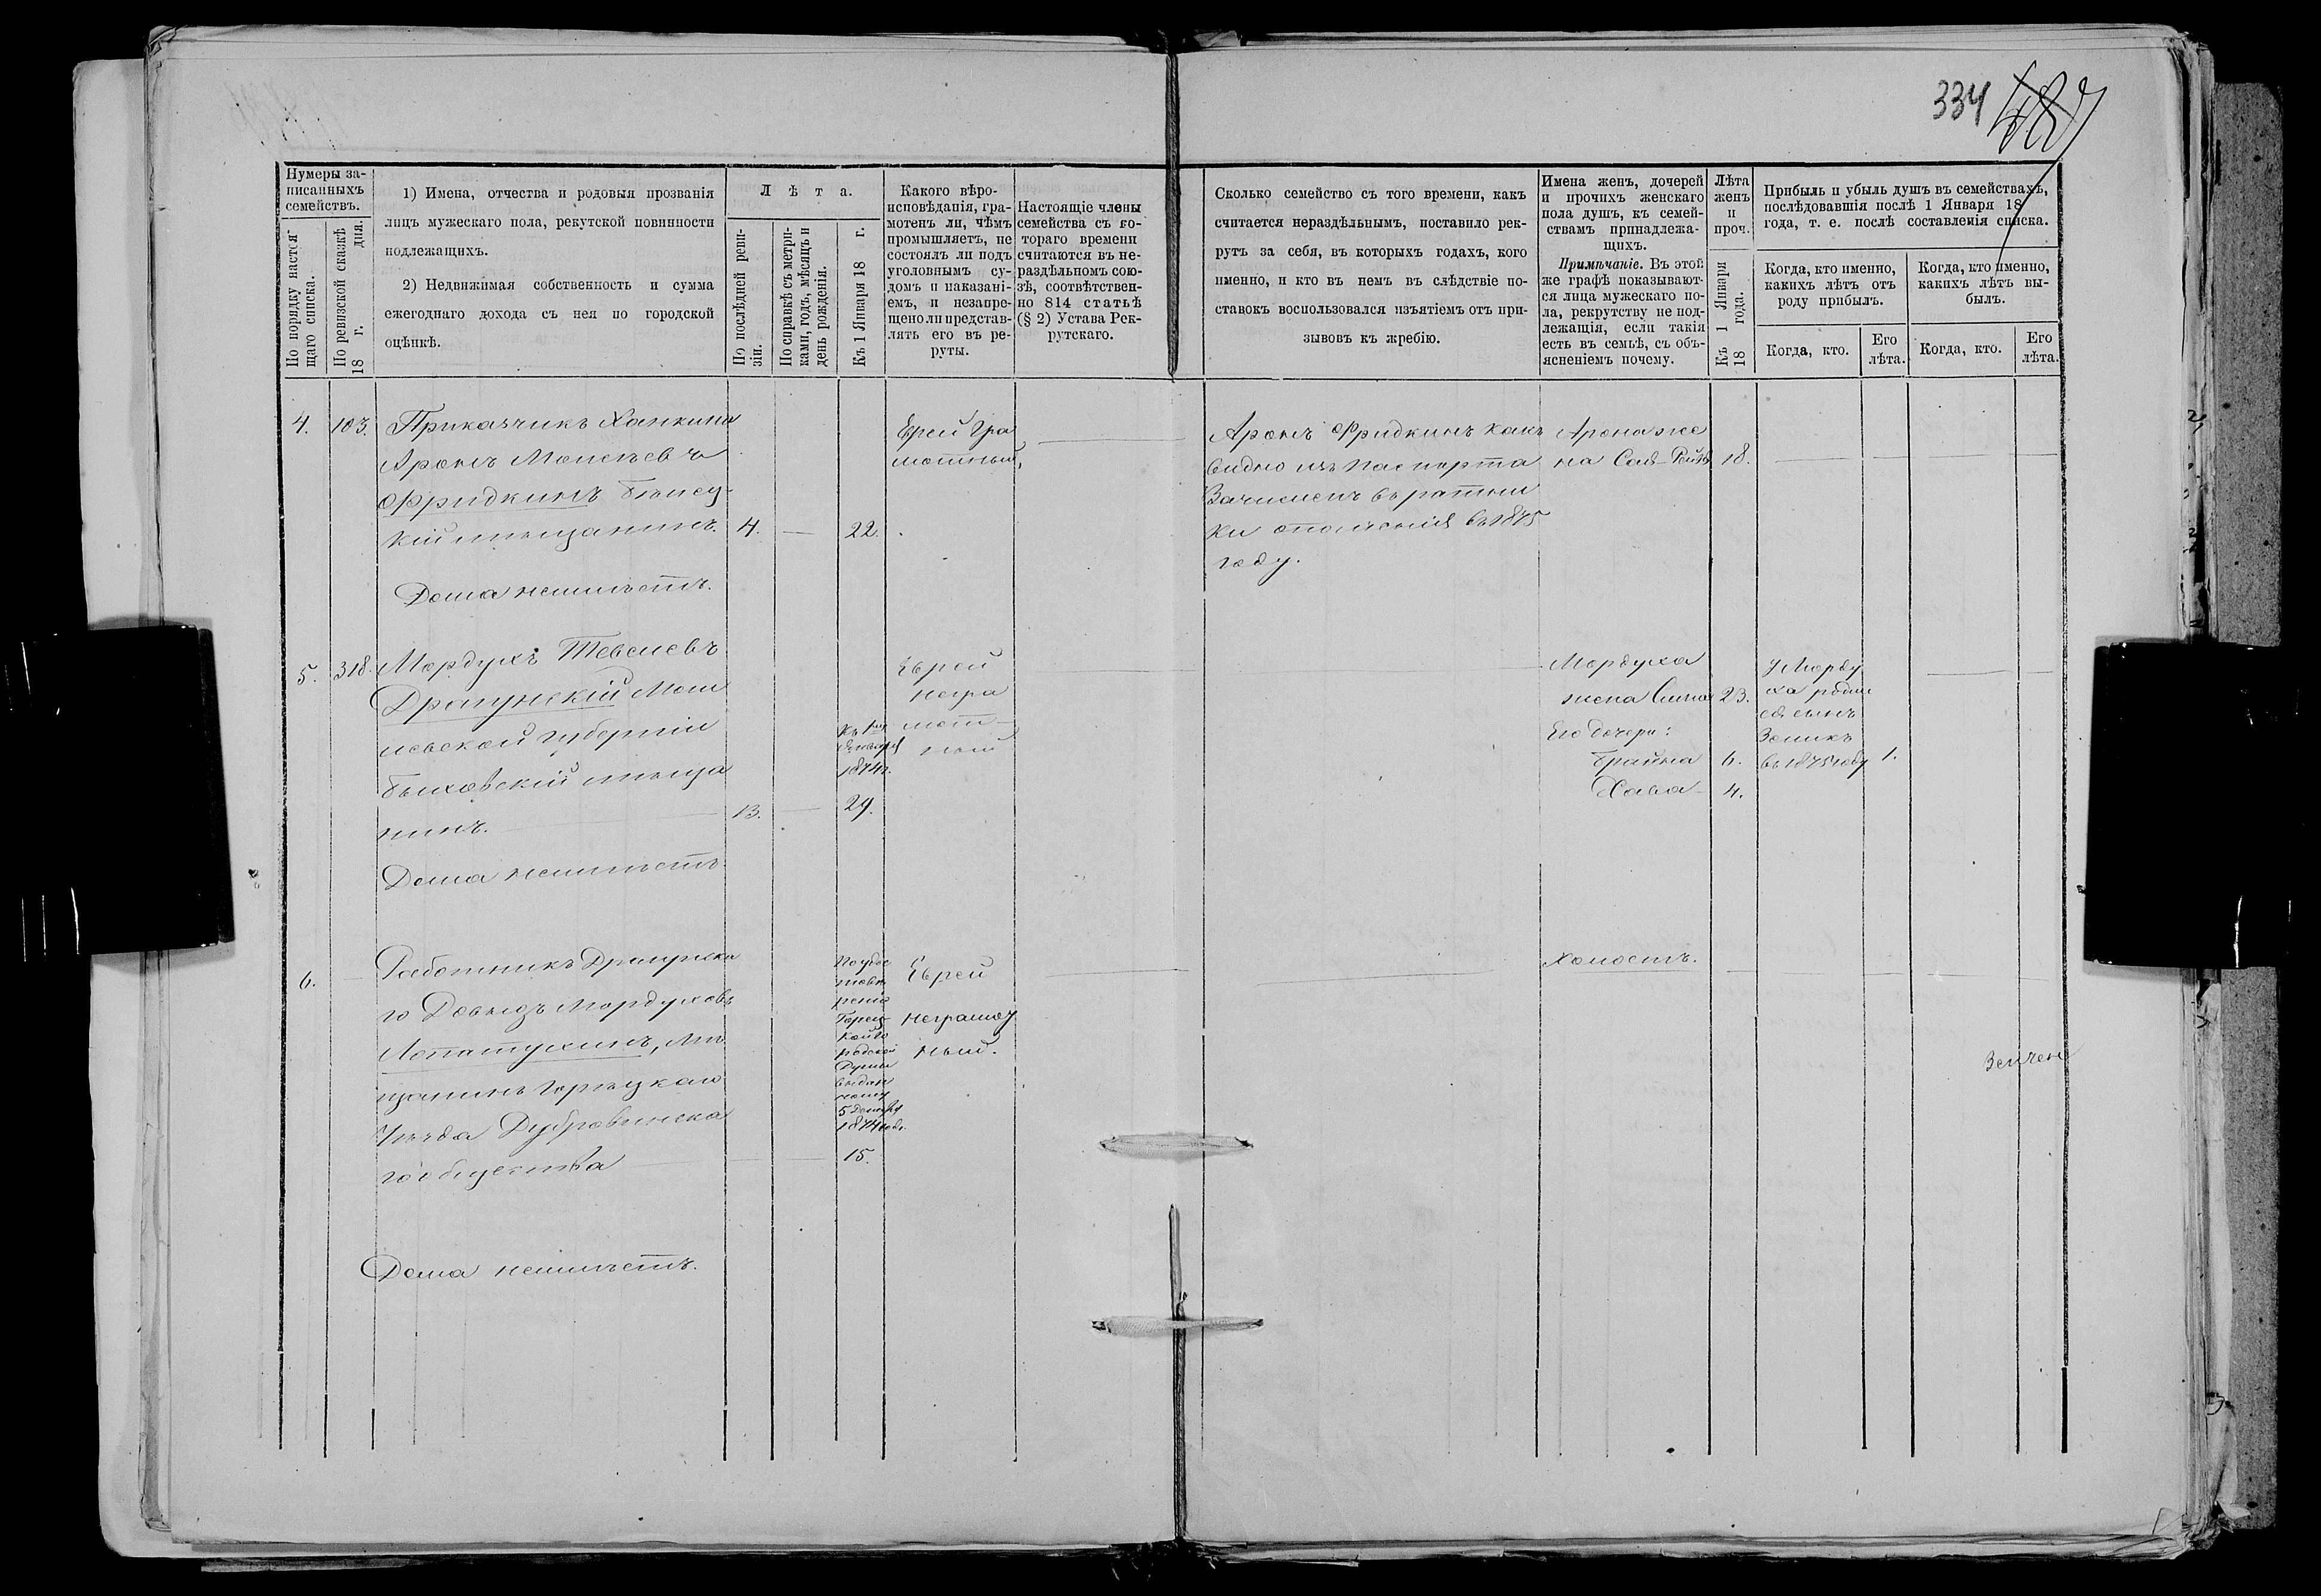 334 487
Нумеры за-
писанныхъ
семействъ.
По порядку настоя-
щаго списка.
По ревизской сказкѣ
18 г. дня.
1) Имена, отчества и родовыя прозванія
лицъ мужескаго пола, рекутской повинности
подлежащихъ.
2) Недвижимая собственность и сумма
ежегоднаго дохода съ нея по городской
оцѣнкѣ.
Лѣта.
По послѣдней реви-
зіи.
По справкѣ съ метри-
ками, годъ, мѣсяцъ и
день рожденія.
Къ 1 Января 18 г.
Какого вѣро-
исповѣданія, гра-
мотенъ ли, чѣмъ
промышляетъ, не
состоялъ ли подъ
уголовнымъ су-
домъ и наказані-
емъ, и незапре-
щено ли представ-
лять его въ ре-
руты.
Настоящіе члены
семейства съ ко-
тораго времени
считаются въ не-
раздѣльномъ сою-
зѣ, соотвѣтствен-
но 814 статьѣ
(§ 2) Устава Рек-
рутскаго.
Сколько семейство съ того времени, какъ
считается нераздѣльнымъ, поставило рек-
рутъ за себя, въ которыхъ годахъ, кого
именно, и кто въ немъ въ слѣдствіе по-
ставокъ воспользовался изъятіемъ отъ при-
зывовъ къ жребію.
Имена женъ, дочерей
и прочихъ женскаго
пола душъ, къ семей-
ствамъ принадлежа-
щихъ.
Примѣчаніе. Въ этой
же графѣ показывают-
ся лица мужескаго по-
ла, рекрутству не под-
лежащія, если такія
есть въ семьѣ, съ объ-
ясненіемъ почему.
Лѣта
женъ
и
проч.
Къ 1 Января
18 года.
Прибыль и убыль душъ въ семействахъ,
послѣдовавшія послѣ 1 Января 18
года, т. е. послѣ составленія списка.
Когда, кто именно,
какихъ лѣтъ отъ
роду прибылъ.
Когда, кто именно,
какихъ лѣтъ вы-
былъ.
Когда, кто.
Его
лѣта.
Когда, кто.
Его
лѣта.
4. 103. Приказчикъ Ханкина
Аронъ Моисѣевъ
Фридкинъ
кій мѣщанинъ. 4. — 22.
Дома неимѣетъ.
Еврей Гра
мотный,
Аронъ Фридкинъ какъ
видно изъ паспорта
Зачисленъ въ ратни
ки ополченія въ 1875
году.
Арона же
на 18.
5. 318. Мордухъ Тевелевъ
Драгунскій Моги
левской губерніи
быховскій мѣща
нинъ. 13. —
Къ 1му
Января
1874г.
29.
Дома неимѣетъ.
Еврей
негра
мот-
ный
Мордуха
жена 23.
Его дочери:
Брайна 6.
Хава 4.
У Морду
ха родил
ся сынъ
Зеликъ
въ 1875 году 1.
6. — Работникъ Драгунска
го Довидъ Мордуховъ
Лопатухинъ, мѣ
щанинъ Горѣцкаго
Уѣзда Дубровинска
го общества
По удос
товѣ
ренію
Горец-
кой Го
родской
Думы
выдан
ному
5 Декабря
1874 года.
15.
Дома неимѣетъ.
Еврей
неграмот
ный.
Холостъ.